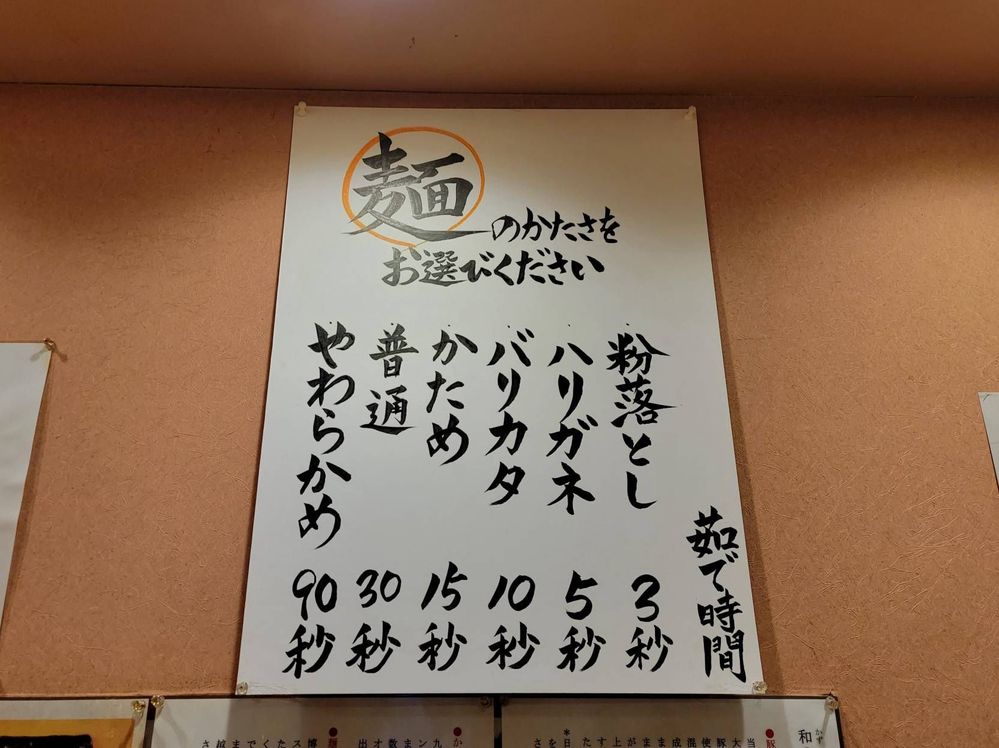 麺のかたさを
お選びください
茹で時間
粉落とし 3秒
ハリガネ 5秒
バリカタ 10秒
かため 15秒
普通 30秒
やわらかめ 90秒